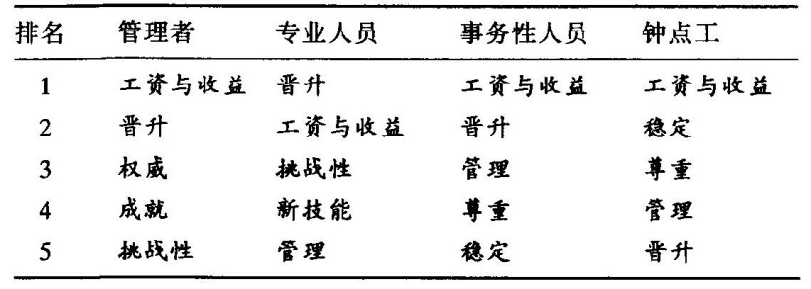 排名 管理者 专业人员 事务性人员 钟点工
1 工资与收益 晋升 工资与收益 工资与收益
2 晋升 工资与收益 晋升 稳定
3 权威 挑战性 管理 尊重
4 成就 新技能 尊重 管理
5 挑战性 管理 稳定 晋升